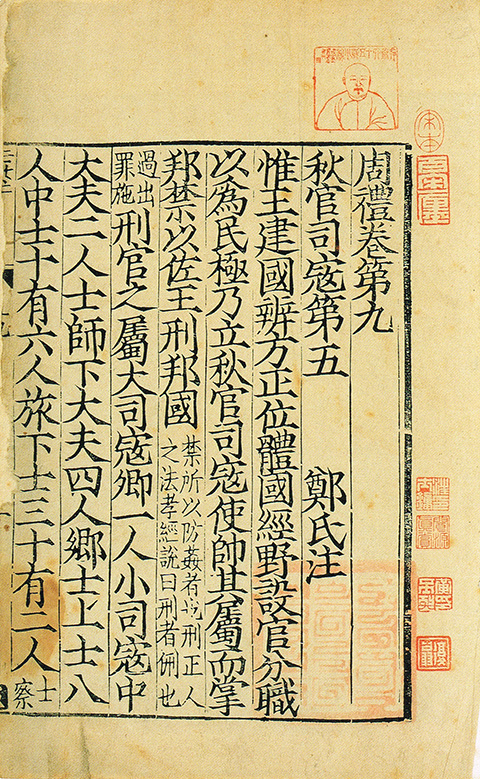 周禮卷第九
秋官司寇第五 鄭氏注
惟王建國辨方正位體國經野設官分職
以為民極乃立秋官司寇使帥其屬而掌
邦禁以佐王刑邦國禁所以防姦者也刑正人
之法孝經說曰刑者侀也
過出
罪施刑官之屬大司寇卿一人小司寇中
大夫二人士師下大夫四人鄉士上士八
人中士十有六人旅下士三十有二人士
察